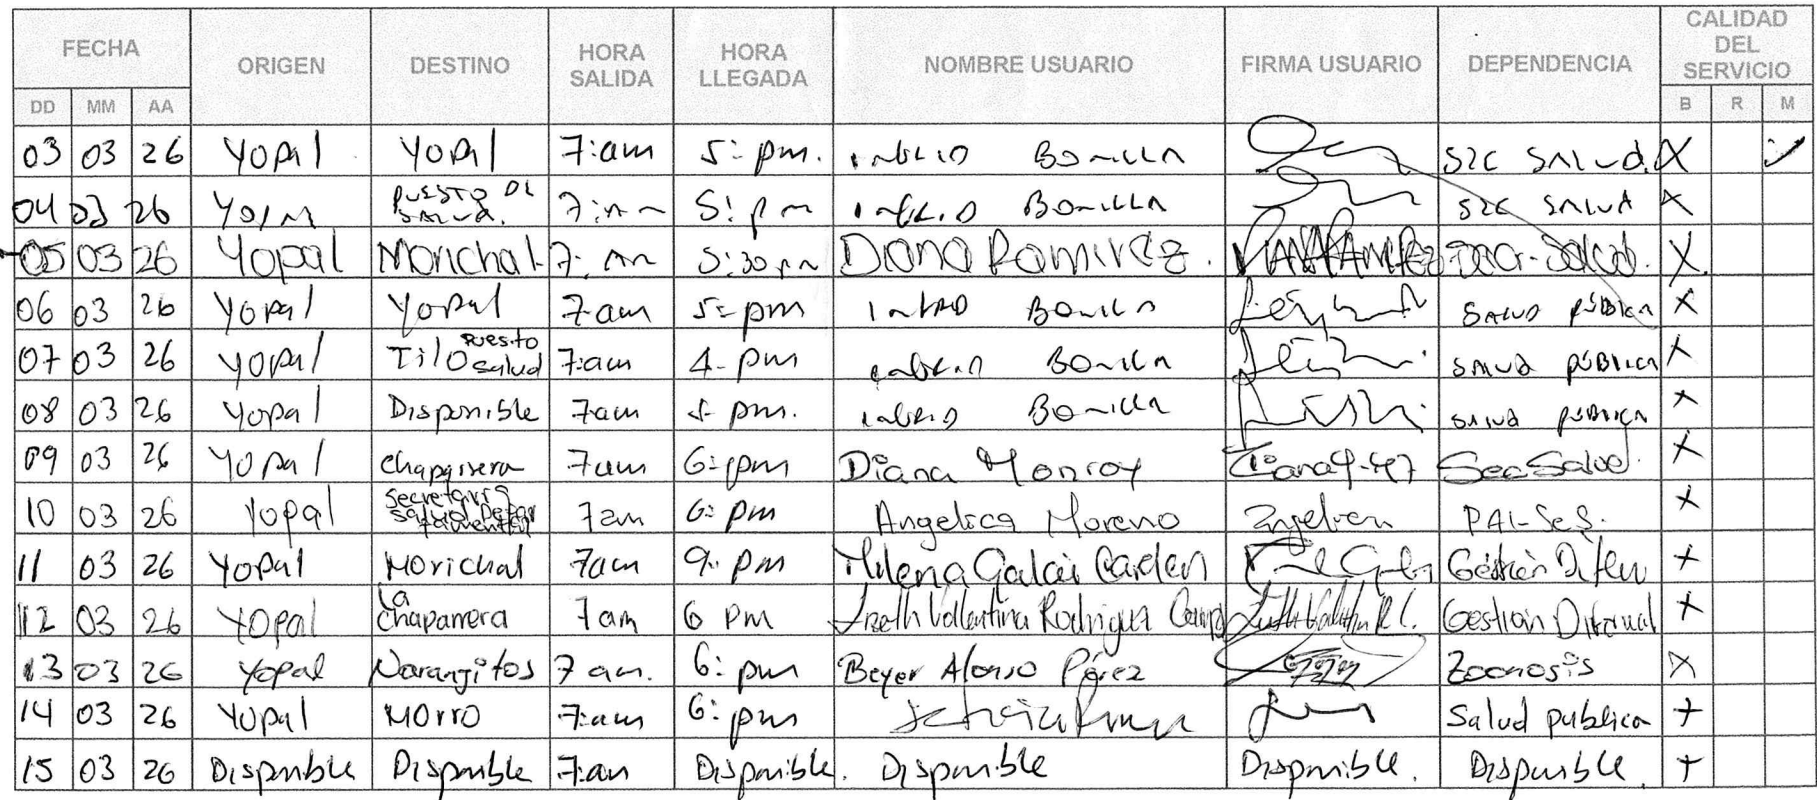 FECHA ORIGEN DESTINO HORA SALIDA HORA LLEGADA NOMBRE USUARIO FIRMA USUARIO DEPENDENCIA CALIDAD DEL SERVICIO
DD MM AA B R M
03 03 26 Yopal Yopal 7:am 5: pm. Bonilla Sec Salud. X
04 03 26 Puesto de Salud. 5: pm Bonilla Sec Salud X
05 03 26 Yopal Morichal 7: am 5:30 pm Diana Ramirez. Salud. X
06 03 26 Yopal Yopal 7am 5: pm Bonilla Salud Pública X
07 03 26 Yopal Tilo Puesto Salud 7:am 4- pm Bonilla Salud Pública X
08 03 26 Yopal Disponible 7am 5- pm. Bonilla Salud Pública X
09 03 26 Yopal Chaparrera 7am 6: pm Diana Monroy Sec Salud. X
10 03 26 Yopal Secretaria Salud Departamental 7am 6: pm Angelica Moreno PAI-Ses. X
11 03 26 Yopal Morichal 7am 9: pm Milena Gestión X
12 03 26 Yopal La Chaparrera 7am 6 pm Valentina Rodriguez Gestión X
13 03 26 Yopal Narangitos 7 am. 6: pm Beyer Alonso Pérez Zoonosis X
14 03 26 Yopal Morro 7:am 6: pm Salud publica +
15 03 26 Disponible Disponible 7:am Disponible. Disponible Disponible. Disponible +